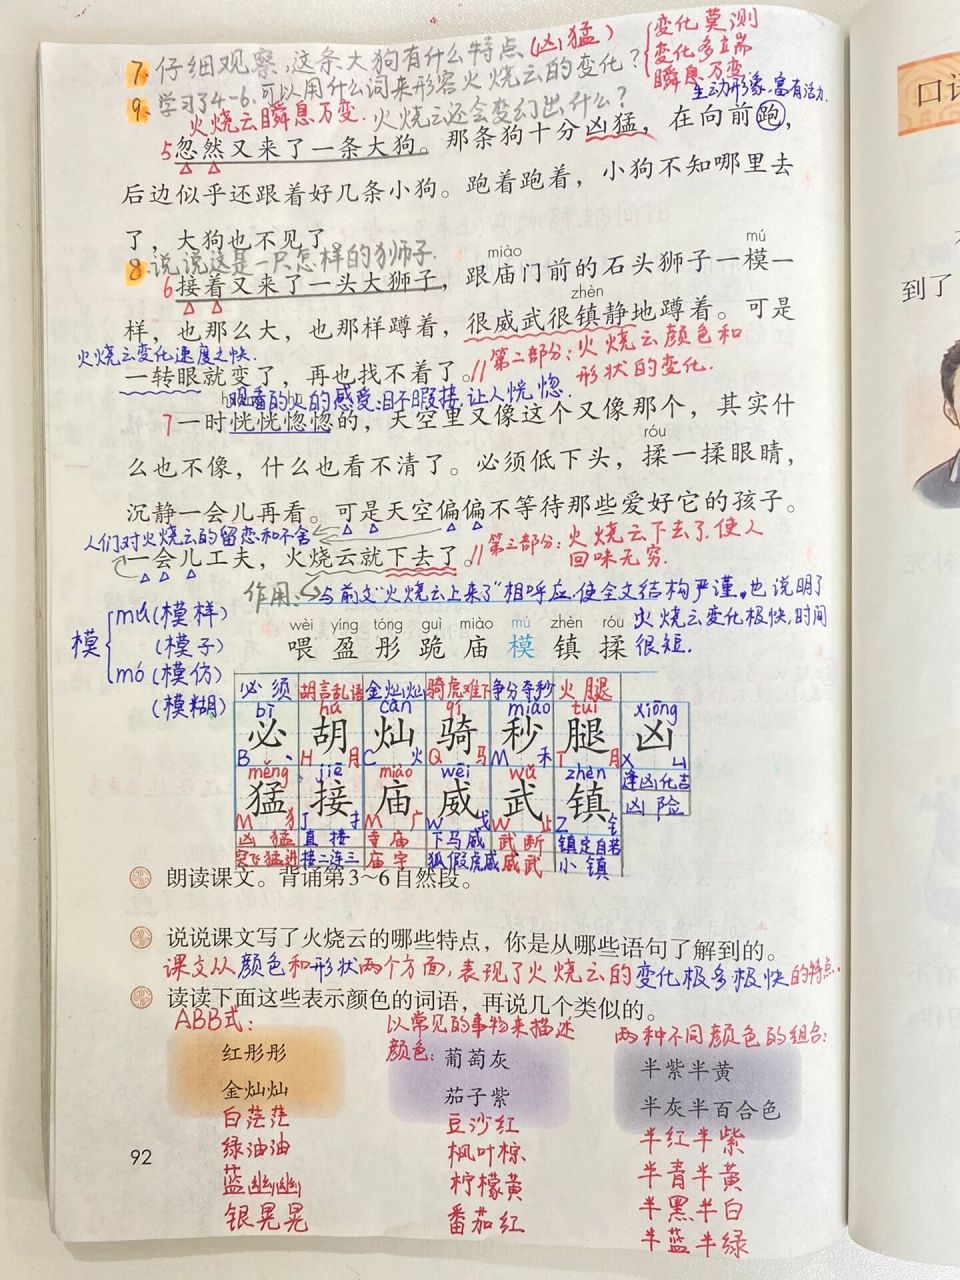 7 仔细观察,这条大狗有什么特点(凶猛)
变化莫测
变化多端
瞬息万变
9 学习了4-6,可以用什么词来形容火烧云的变化?
生动形象.富有活力.
火烧云瞬息万变. 火烧云还会变幻出什么?
5忽然又来了一条大狗。那条狗十分凶猛,在向前跑,
后边似乎还跟着好几条小狗。跑着跑着,小狗不知哪里去
了,大狗也不见了
8 说说这是一只怎样的狮子.
miào mú
6接着又来了一头大狮子,跟庙门前的石头狮子一模一
zhèn
样,也那么大,也那样蹲着,很威武很镇静地蹲着。可是
火烧云变化速度之快.
一转眼就变了,再也找不着了。//第二部分:火烧云颜色和
形状的变化.
观看的人的感受,目不暇接,让人恍惚
7一时恍恍惚惚的,天空里又像这个又像那个,其实什
róu
么也不像,什么也看不清了。必须低下头,揉一揉眼睛,
沉静一会儿再看。可是天空偏偏不等待那些爱好它的孩子。
人们对火烧云的留恋和不舍
一会儿工夫,火烧云就下去了。//第三部分:火烧云下去了,使人
回味无穷.
作用: 与前文"火烧云上来了"相呼应.使全文结构严谨。也说明了
火烧云变化极快,时间
很短.
模
mú(模样)
(模子)
mó(模仿)
(模糊)
wèi yíng tóng guì miào mú zhèn róu
喂 盈 彤 跪 庙 模 镇 揉
必须 胡言乱语 金灿灿 骑虎难下 争分夺秒 火腿
bì hú càn qí miǎo tuǐ xiōng
必 胡 灿 骑 秒 腿 凶
B 丶 H 月 C 火 Q 马 M 禾 T 月 X 凵
měng jiē miào wēi wǔ zhèn
逢凶化吉
猛 接 庙 威 武 镇
凶险
M 犭 J 扌 M 广 W 戈 W 止 Z 钅
凶猛 直接 寺庙 下马威 武断 镇定自若
突飞猛进 接二连三 庙宇 狐假虎威 威武 小镇
朗读课文。背诵第3~6自然段。
说说课文写了火烧云的哪些特点,你是从哪些语句了解到的。
课文从颜色和形状两个方面,表现了火烧云的变化极多极快的特点.
读读下面这些表示颜色的词语,再说几个类似的。
ABB式:
红彤彤
金灿灿
白茫茫
绿油油
蓝幽幽
银晃晃
以常见的事物来描述
颜色:
葡萄灰
茄子紫
豆沙红
枫叶棕
柠檬黄
番茄红
两种不同颜色的组合:
半紫半黄
半灰半百合色
半红半紫
半青半黄
半黑半白
半蓝半绿
92
口语
到了